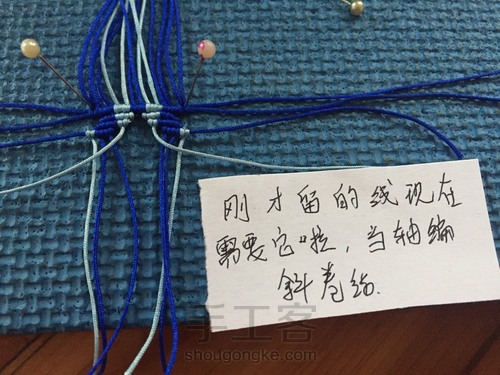 刚才留的线现在
需要它啦，当轴编
斜卷结.
手工客
shougongke.com